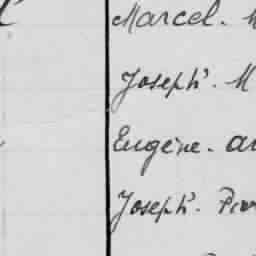 Marcel.
Joseph. M
Eugène. an
Joseph.